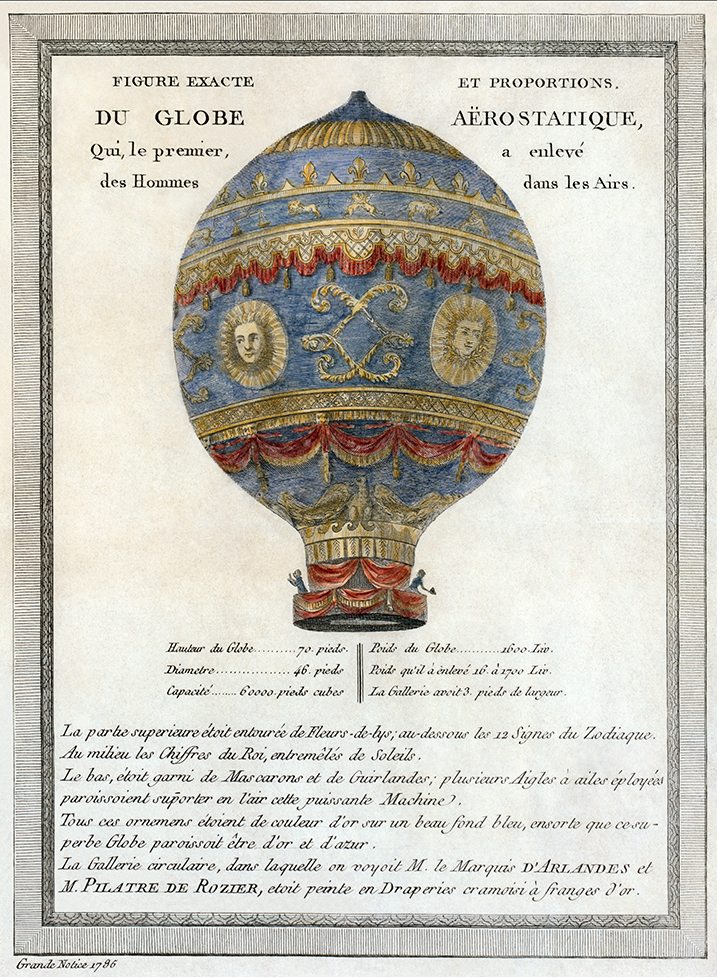 FIGURE EXACTE ET PROPORTIONS.
DU GLOBE AËROSTATIQUE,
Qui, le premier, a enlevé
des Hommes dans les Airs.
Hauteur du Globe..........70. pieds.
Diametre..................46. pieds
Capacité........60000. pieds cubes
Poids du Globe...........1600. Liv.
Poids qu'il à enlevé 16. à 1700 Liv.
La Gallerie avoit 3. pieds de largeur.
La partie superieure étoit entourée de Fleurs-de-lys; au-dessous les 12 Signes du Zodiaque.
Au milieu les Chiffres du Roi, entremêlés de Soleils.
Le bas, étoit garni de Mascarons et de Guirlandes; plusieurs Aigles à ailes éployées
paroissoient supörter en l'air cette puissante Machine.
Tous ces ornemens étoient de couleur d'or sur un beau fond bleu, ensorte que ce su-
perbe Globe paroissoit être d'or et d'azur.
La Gallerie circulaire, dans laquelle on voyoit M. le Marquis D'ARLANDES et
M. PILATRE DE ROZIER, etoit peinte en Draperies cramoisi à franges d'or.
Grande Notice 1786